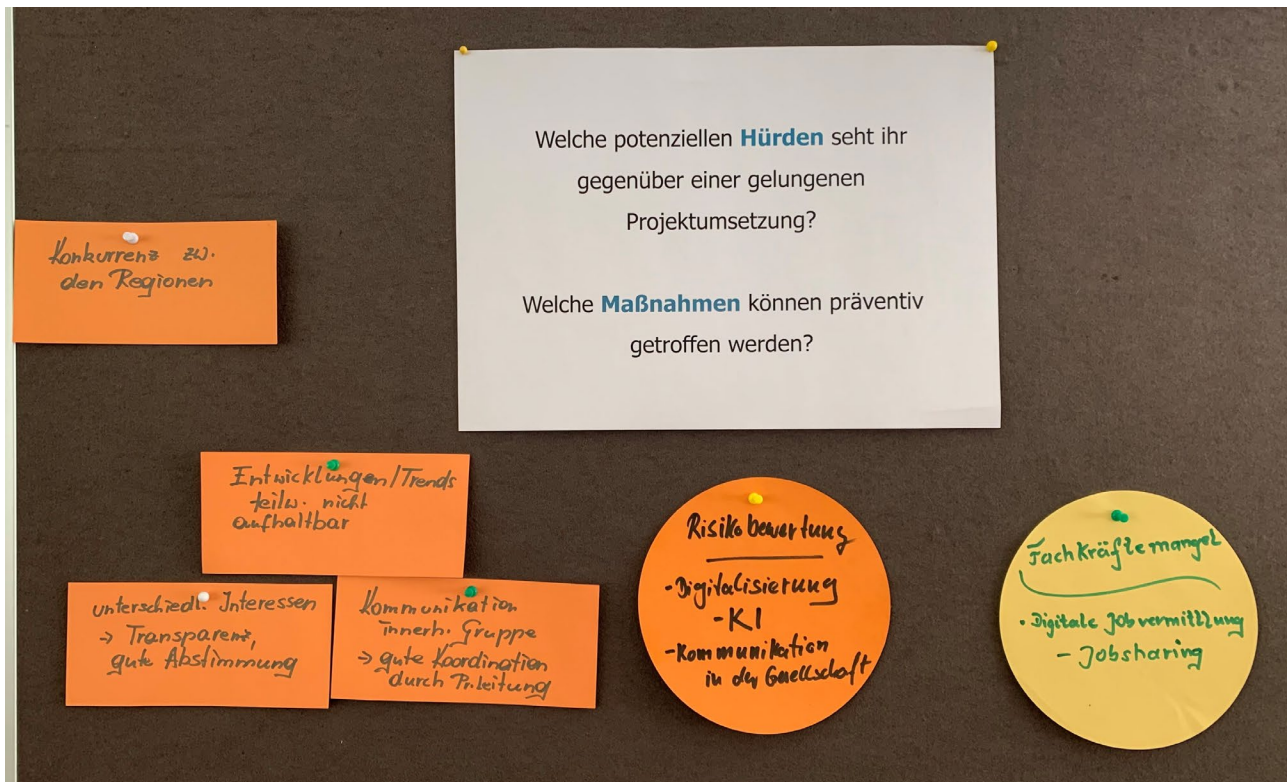 Welche potenziellen Hürden seht ihr
gegenüber einer gelungenen
Projektumsetzung?
Welche Maßnahmen können präventiv
getroffen werden?
Konkurrenz zw.
den Regionen
Entwicklungen/Trends
teilw. nicht
aufhaltbar
unterschiedl. Interessen
→ Transparenz,
gute Abstimmung
Kommunikation
innerh. Gruppe
→ gute Koordination
durch Pr.leitung
Risikobewertung
-Digitalisierung
-KI
-Kommunikation
in der Gesellschaft
Fachkräftemangel
• Digitale Jobvermittlung
- Jobsharing